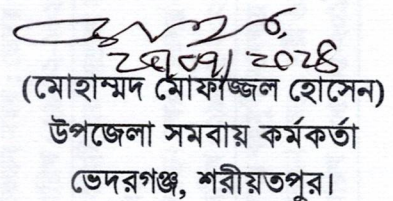 (মোহাম্মদ মোফাজ্জল হোসেন)
উপজেলা সমবায় কর্মকর্তা
ভেদরগঞ্জ, শরীয়তপুর।